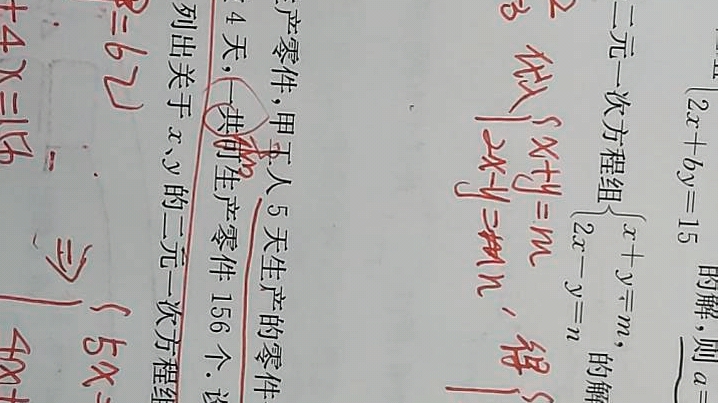 2x+by=15 的解,则 a=
二元一次方程组{x+y=m, 2x-y=n 的解
代入{x+y=m 2x-y=n, 得{
产零件,甲工人5天生产的零件
4天,一共可生产零件156个.设
列出关于x、y的二元一次方程组
=62
+4x=156
⇒{5x=
4x+